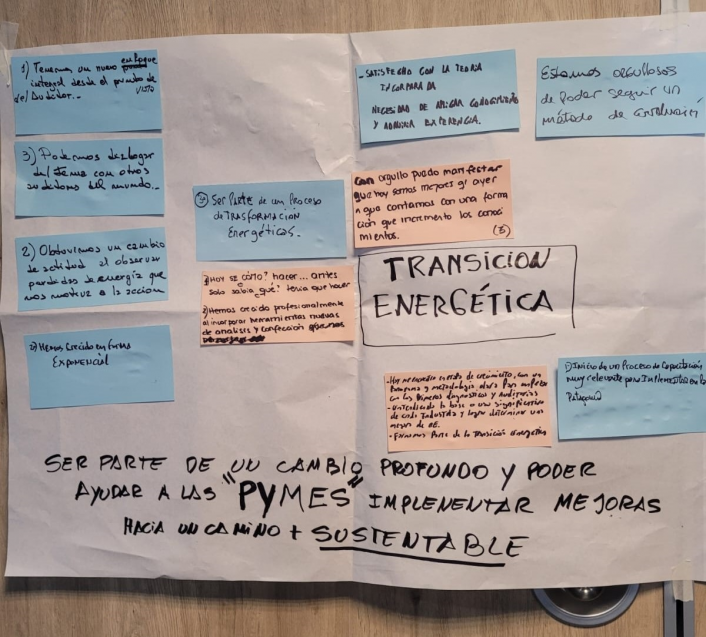 1) Tenemos un nuevo enfoque
integral desde el punto de
vista
del Auditor...
3) Podemos dialogar
del tema con otros
auditores del mundo...
2) Obtuvimos un cambio
de actitud al observar
perdidas de energía que
nos motive a la acción
2) Hemos Crecido en forma
EXPONENCIAL
3) Ser Parte de un Proceso
de TRASFORMACION
Energéticos.
1) HOY SE CÓMO? hacer... antes
solo sabía qué? tenía que hacer
2) Hemos crecido profesionalmente
al incorporar herramientas nuevas
de analisis y confección
- SATISFECHO CON LA TEORIA
INCORPARADA
NECESIDAD DE APLICAR CONOCIMIENTO
Y ADQUIRIR EXPERIENCIA.
Estamos orgullosos
de Poder seguir un
método de
Con orgullo puedo manifestar
que hoy somos mejores q' ayer
contamos con una forma
ción que incremento los conoci
mientos.
TRANSICION
ENERGÉTICA
- Hoy
y metodología clara Para
con los Primeros diagnosticos y Auditorias
significativo
de cada Industria y lograr determinar una
- Formamos Parte de la Transición Energética
1) Inicio de un Proceso de Capacitación
muy relevante para Implementar en la
Patagonia
SER PARTE DE UN CAMBIO PROFUNDO Y PODER
AYUDAR A LAS "PYMES" IMPLEMENTAR MEJORAS
HACIA UN CAMINO + SUSTENTABLE